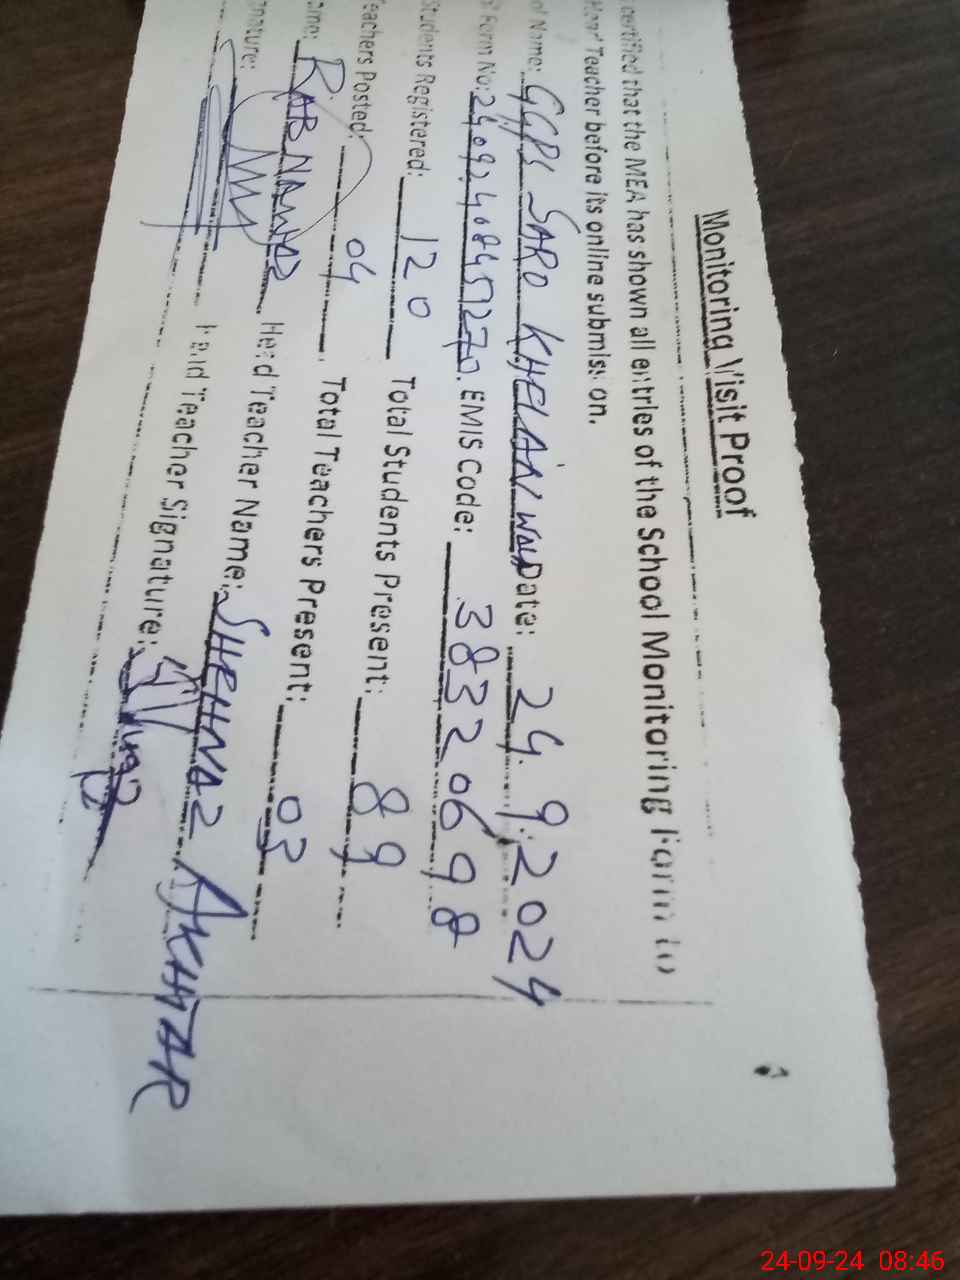 Monitoring Visit Proof
certified that the MEA has shown all entries of the School Monitoring Form to
Head Teacher before its online submission.
ol Name: GGPS SARO KHELAIN Wala Date: 24.9.2024
Form No: EMIS Code: 38320698
Students Registered: 120 Total Students Present: 89
Teachers Posted: 04 Total Teachers Present: 03
ame: RAB NAWAZ Head Teacher Name: SHEHNAZ AKHTAR
gnature: Head Teacher Signature:
24-09-24 08:46